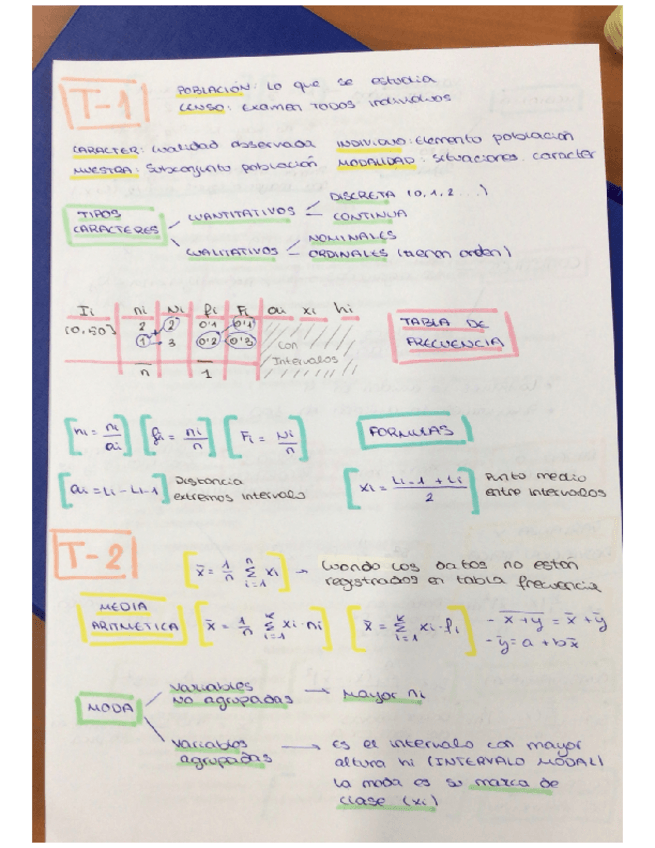 T-1
POBLACIÓN: Lo que se estudia
CENSO: Examen TODOS individuos
CARACTER: cualidad observada INDIVIDUO: Elemento población
MUESTRA: Subconjunto población MODALIDAD: Situaciones caracter
TIPOS CARACTERES
CUANTITATIVOS
DISCRETA (0,1,2...)
CONTINUA
CUALITATIVOS
NOMINALES
ORDINALES (tienen orden)
Ii ni Ni fi Fi ai xi hi
(0,50] 2 2 0'1 0'1
1 3 0'2 0'3
n 1
con
Intervalos
TABLA DE
FRECUENCIA
[hi = ni/ai] [fi = ni/n] [Fi = Ni/n]
FORMULAS
[ai = Li - Li-1] Distancia
extremos intervalo
[xi = (Li-1 + Li)/2] Punto medio
entre intervalos
T-2
[x̄ = 1/n Σ(i=1, n) xi] → cuando los datos no están
registrados en tabla frecuencia
MEDIA
ARITMETICA
[x̄ = 1/n Σ(i=1, k) xi·ni] [x̄ = Σ(i=1, k) xi·fi]
- \overline{x+y} = x̄ + ȳ
- ȳ = a + bx̄
MODA
variables
no agrupadas → Mayor ni
variables
agrupadas → es el intervalo con mayor
altura hi (INTERVALO MODAL)
La moda es su marca de
clase (xi)